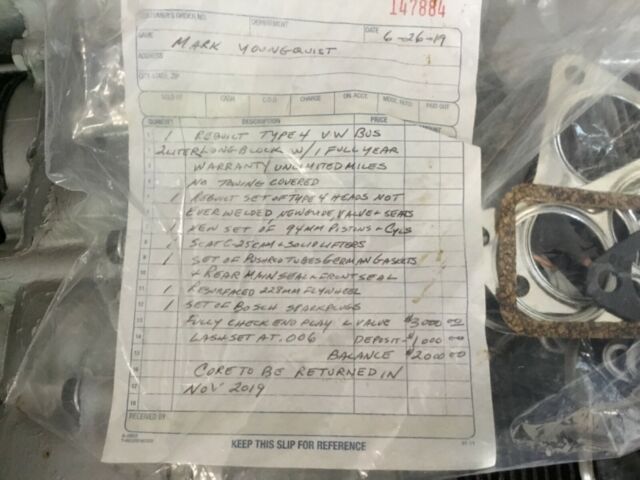 147884
CUSTOMER'S ORDER NO. DEPARTMENT DATE 6-26-19
NAME MARK YOUNGQUIST
ADDRESS
CITY, STATE, ZIP
SOLD BY CASH C.O.D. CHARGE ON ACCT. MDSE. RETD. PAID OUT
QUANTITY DESCRIPTION PRICE AMOUNT
1 1 REBUILT TYPE 4 VW BUS
2 LITER LONG BLOCK W/ 1 FULL YEAR
WARRANTY UNLIMITED MILES
NO TOWING COVERED
1 REBUILT SET OF TYPE 4 HEADS NOT
EVER WELDED NEW GUIDE, VALVE + SEATS
NEW SET OF 94MM PISTONS + CYLS
8 1 SCAT C-25 CAM + SOLID LIFTERS
9 1 SET OF PUSHROD TUBES GERMAN GASKETS
10 + REAR MAIN SEAL + FRONT SEAL
11 1 RESURFACED 228MM FLYWHEEL
12 1 SET OF BOSCH SPARKPLUGS
13 FULLY CHECK END PLAY & VALVE $3000 00
14 LASH SET AT .006 DEPOSIT - $1000 00
15 BALANCE $2000 00
16 CORE TO BE RETURNED IN
17 NOV 2019
18
RECEIVED BY
KEEP THIS SLIP FOR REFERENCE